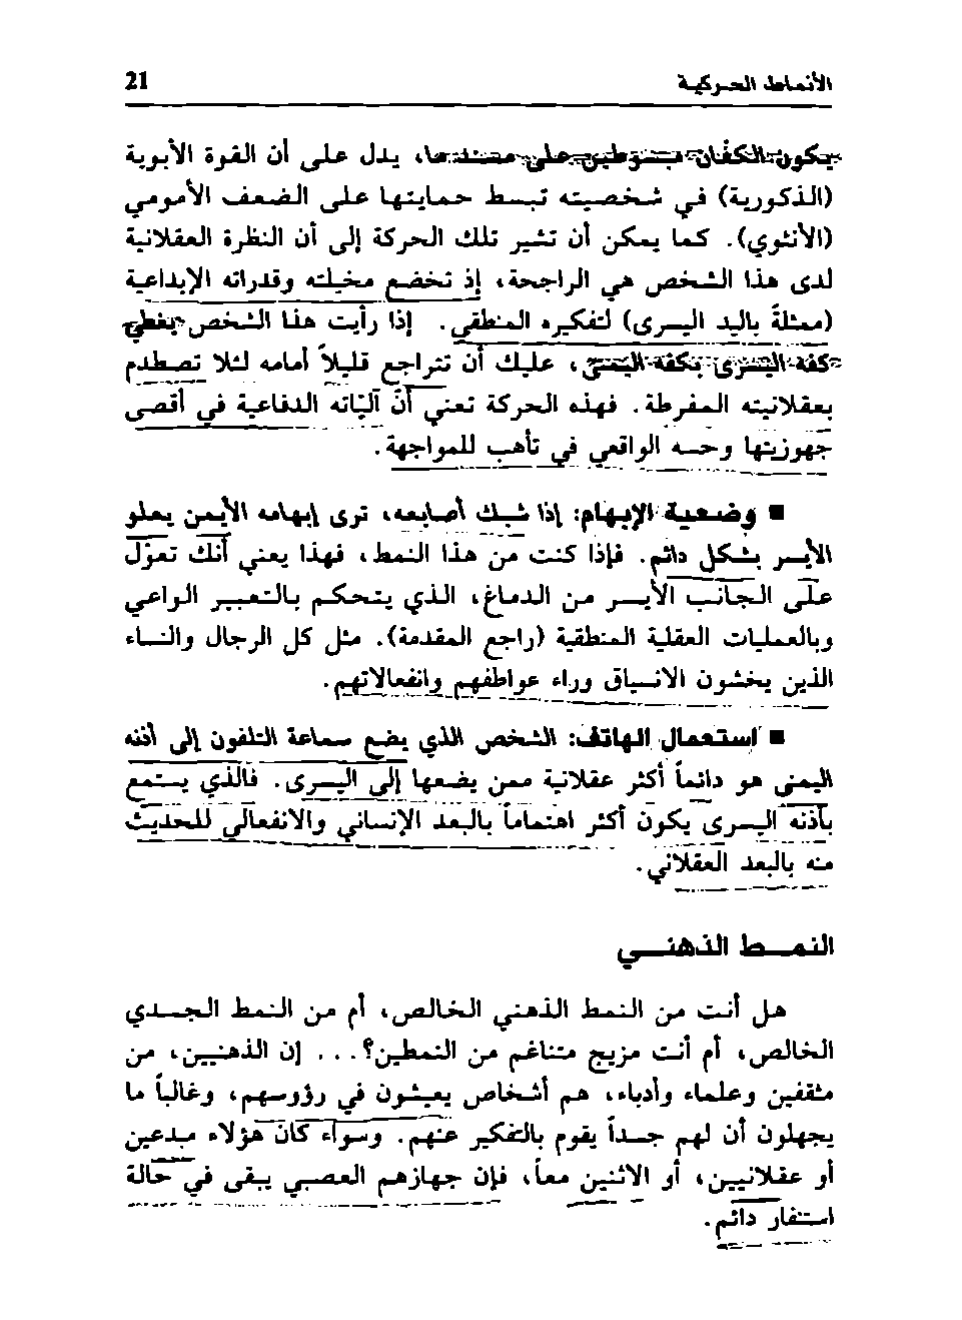 الأنماط الحركية
21
يكون الكفّان مبسوطين على مسندهما، يدل على أن القوة الأبوية
(الذكورية) في شخصيته تبسط حمايتها على الضعف الأمومي
(الأنثوي). كما يمكن أن تشير تلك الحركة إلى أن النظرة العقلانية
لدى هذا الشخص هي الراجحة، إذ تخضع مخيلته وقدراته الإبداعية
(ممثلةً باليد اليسرى) لتفكيره المنطقي. إذا رأيت هذا الشخص يغطي
كفه اليسرى بكفه اليمنى، عليك أن تتراجع قليلاً أمامه لئلا تصطدم
بعقلانيته المفرطة. فهذه الحركة تعني أنّ آليّاته الدفاعية في أقصى
جهوزيتها وحسه الواقعي في تأهب للمواجهة.
■ وضعية الإبهام: إذا شبك أصابعه، ترى إبهامه الأيمن يعلو
الأيسر بشكل دائم. فإذا كنت من هذا النمط، فهذا يعني أنك تعوّل
على الجانب الأيسر من الدماغ، الذي يتحكم بالتعبير الواعي
وبالعمليات العقلية المنطقية (راجع المقدمة). مثل كل الرجال والنساء
الذين يخشون الانسياق وراء عواطفهم وانفعالاتهم.
■ استعمال الهاتف: الشخص الذي يضع سماعة التلفون إلى أذنه
اليمنى هو دائماً أكثر عقلانية ممن يضعها إلى اليسرى. فالذي يستمع
بأذنه اليسرى يكون أكثر اهتماماً بالبعد الإنساني والانفعالي للحديث
منه بالبعد العقلاني.
النمـط الذهنـي
هل أنت من النمط الذهني الخالص، أم من النمط الجسدي
الخالص، أم أنت مزيج متناغم من النمطين؟... إن الذهنيين، من
مثقفين وعلماء وأدباء، هم أشخاص يعيشون في رؤوسهم، وغالباً ما
يجهلون أن لهم جسداً يقوم بالتفكير عنهم. وسواء كان هؤلاء مبدعين
أو عقلانيين، أو الاثنين معاً، فإن جهازهم العصبي يبقى في حالة
استنفار دائم.